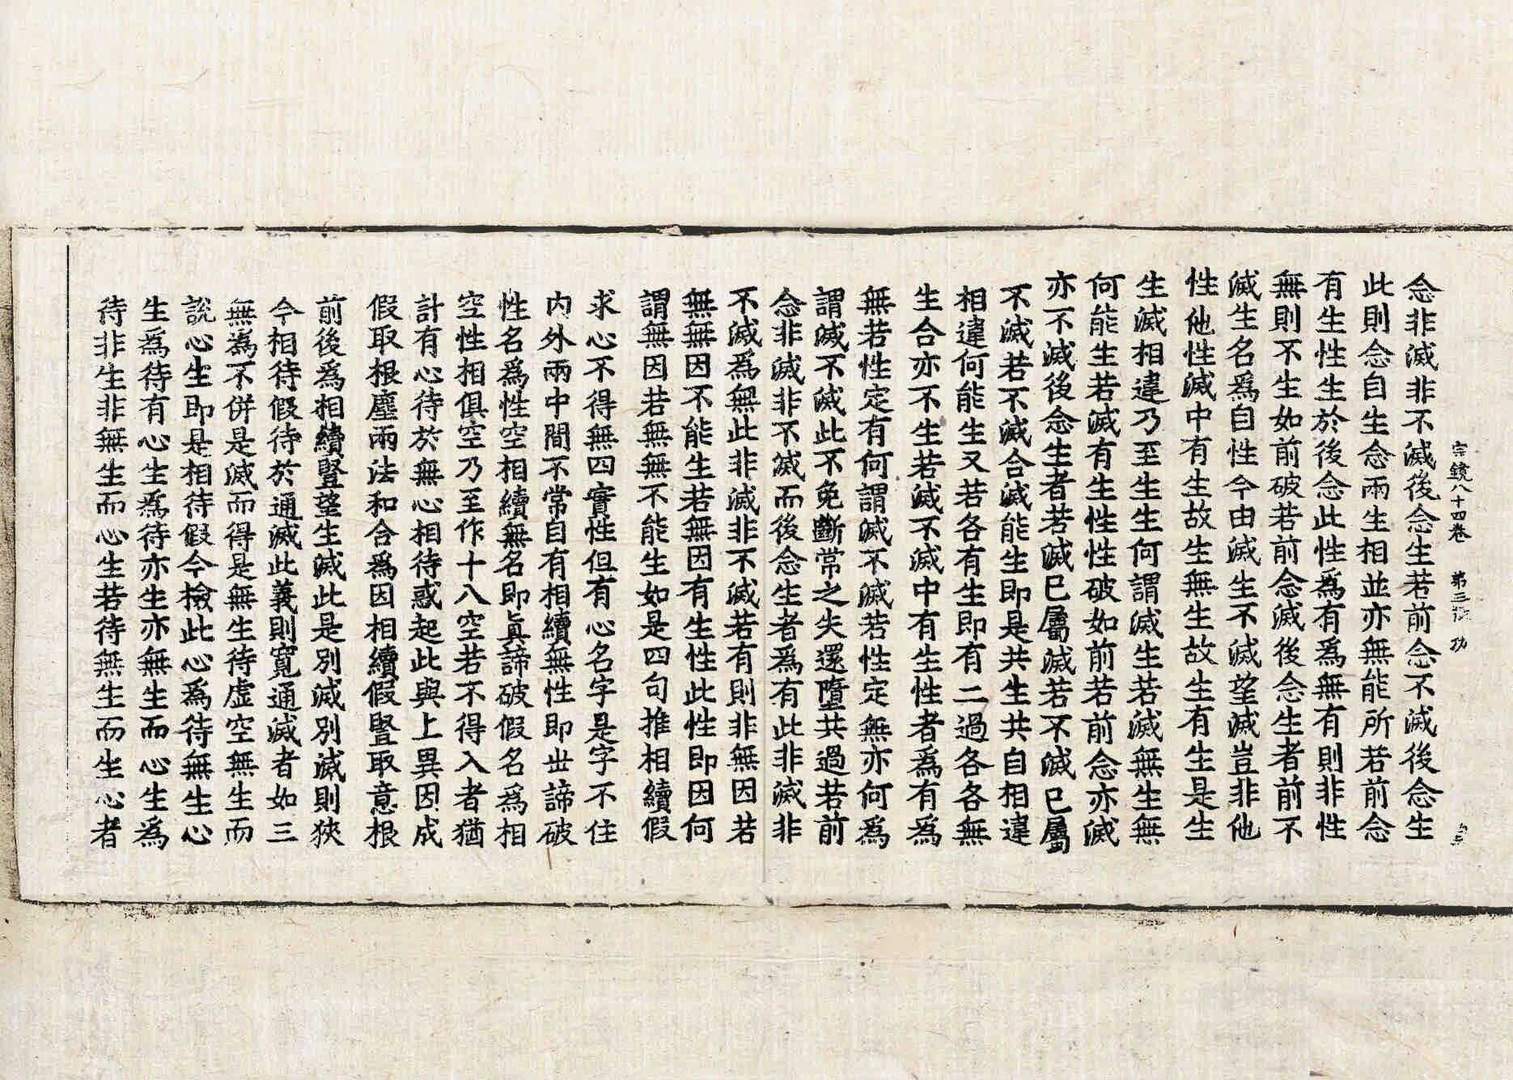 宗鏡八十四卷 第三張 功
念非滅非不滅後念生若前念不滅後念生
此則念自生念兩生相並亦無能所若前念
有生性生於後念此性為有為無有則非性
無則不生如前破若前念滅後念生者前不
滅生名為自性今由滅生不滅望滅豈非他
性他性滅中有生故生無生故生有生是生
生滅相違乃至生生何謂滅生若滅無生無
何能生若滅有生性性破如前若前念亦滅
亦不滅後念生者若滅已屬滅若不滅已屬
不滅若不滅合滅能生即是共生共自相違
相違何能生又若各有生即有二過各各無
生合亦不生若滅不滅中有生性者為有為
無若性定有何謂滅不滅若性定無亦何為
謂滅不滅此不免斷常之失還墮共過若前
念非滅非不滅而後念生者為有此非滅非
不滅為無此非滅非不滅若有則非無因若
無無因不能生若無因有生性此性即因何
謂無因若無無不能生如是四句推相續假
求心不得無四實性但有心名字是字不住
內外兩中間不常自有相續無性即世諦破
性名為性空相續無名即真諦破假名為相
空性相俱空乃至作十八空若不得入者猶
計有心待於無心相待惑起此與上異因成
假取根塵兩法和合為因相續假豎取意根
前後為相續豎望生滅此是別滅別滅則狹
今相待假待於通滅此義則寬通滅者如三
無為不併是滅而得是無生待虛空無生而
說心生即是相待假今檢此心為待無生心
生為待有心生為待亦生亦無生而心生為
待非生非無生而心生若待無生而生心者